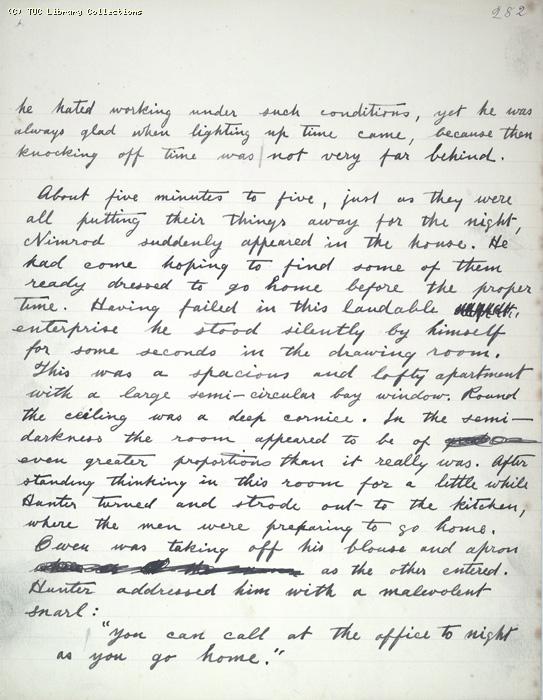 (C) TUC Library Collections
282
he hated working under such conditions, yet he was
always glad when lighting up time came, because then
knocking off time was not very far behind.
About five minutes to five, just as they were
all putting their things away for the night,
Nimrod suddenly appeared in the house. He
had come hoping to find some of them
ready dressed to go home before the proper
time. Having failed in this laudable
enterprise he stood silently by himself
for some seconds in the drawing room.
This was a spacious and lofty apartment
with a large semi-circular bay window. Round
the ceiling was a deep cornice. In the semi-
darkness the room appeared to be of
even greater proportions than it really was. After
standing thinking in this room for a little while
Hunter turned and strode out to the kitchen,
where the men were preparing to go home.
Owen was taking off his blouse and apron
as the other entered.
Hunter addressed him with a malevolent
snarl:
"You can call at the office to night
as you go home."